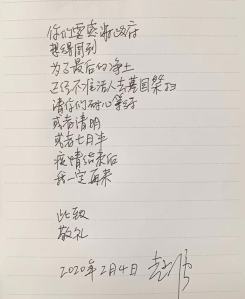 你们要感谢政府
想得周到
为了最后的净土
还不准活人去墓园祭扫
请你们耐心等候
或者清明
或者七月半
疫情结束后
我一定再来
此致
敬礼
2020年2月4日